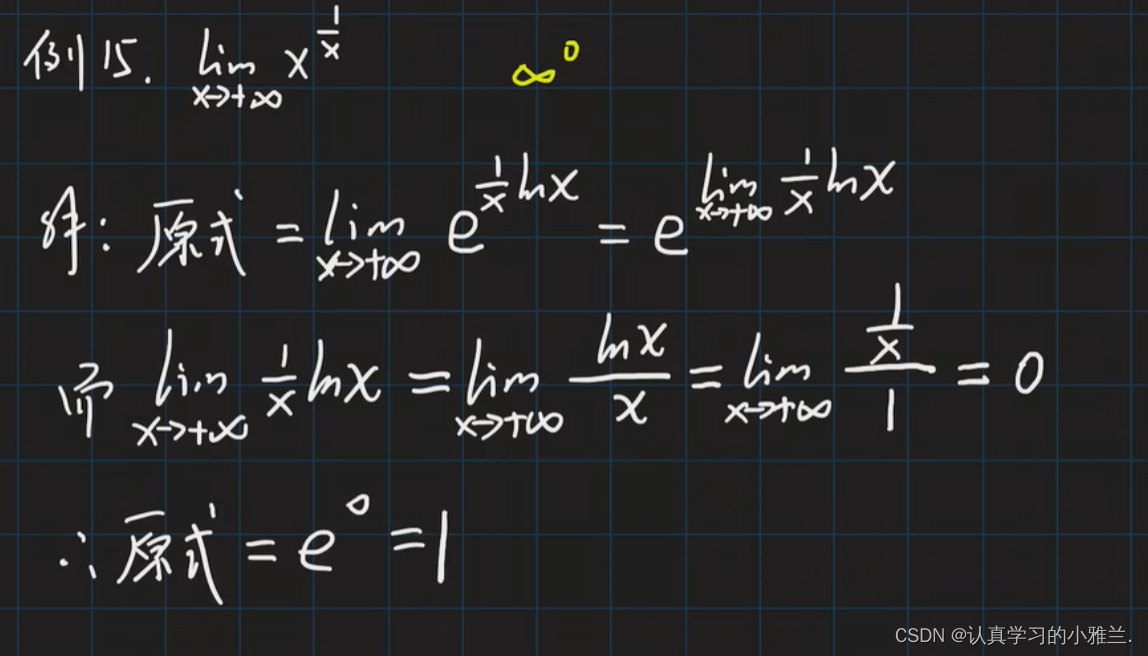 例15. lim x→+∞ x^(1/x) ∞^0
解: 原式 = lim x→+∞ e^(1/x lnx) = e^(lim x→+∞ 1/x lnx)
而 lim x→+∞ 1/x lnx = lim x→+∞ lnx/x = lim x→+∞ (1/x)/1 = 0
∴原式 = e^0 = 1
CSDN @认真学习的小雅兰.